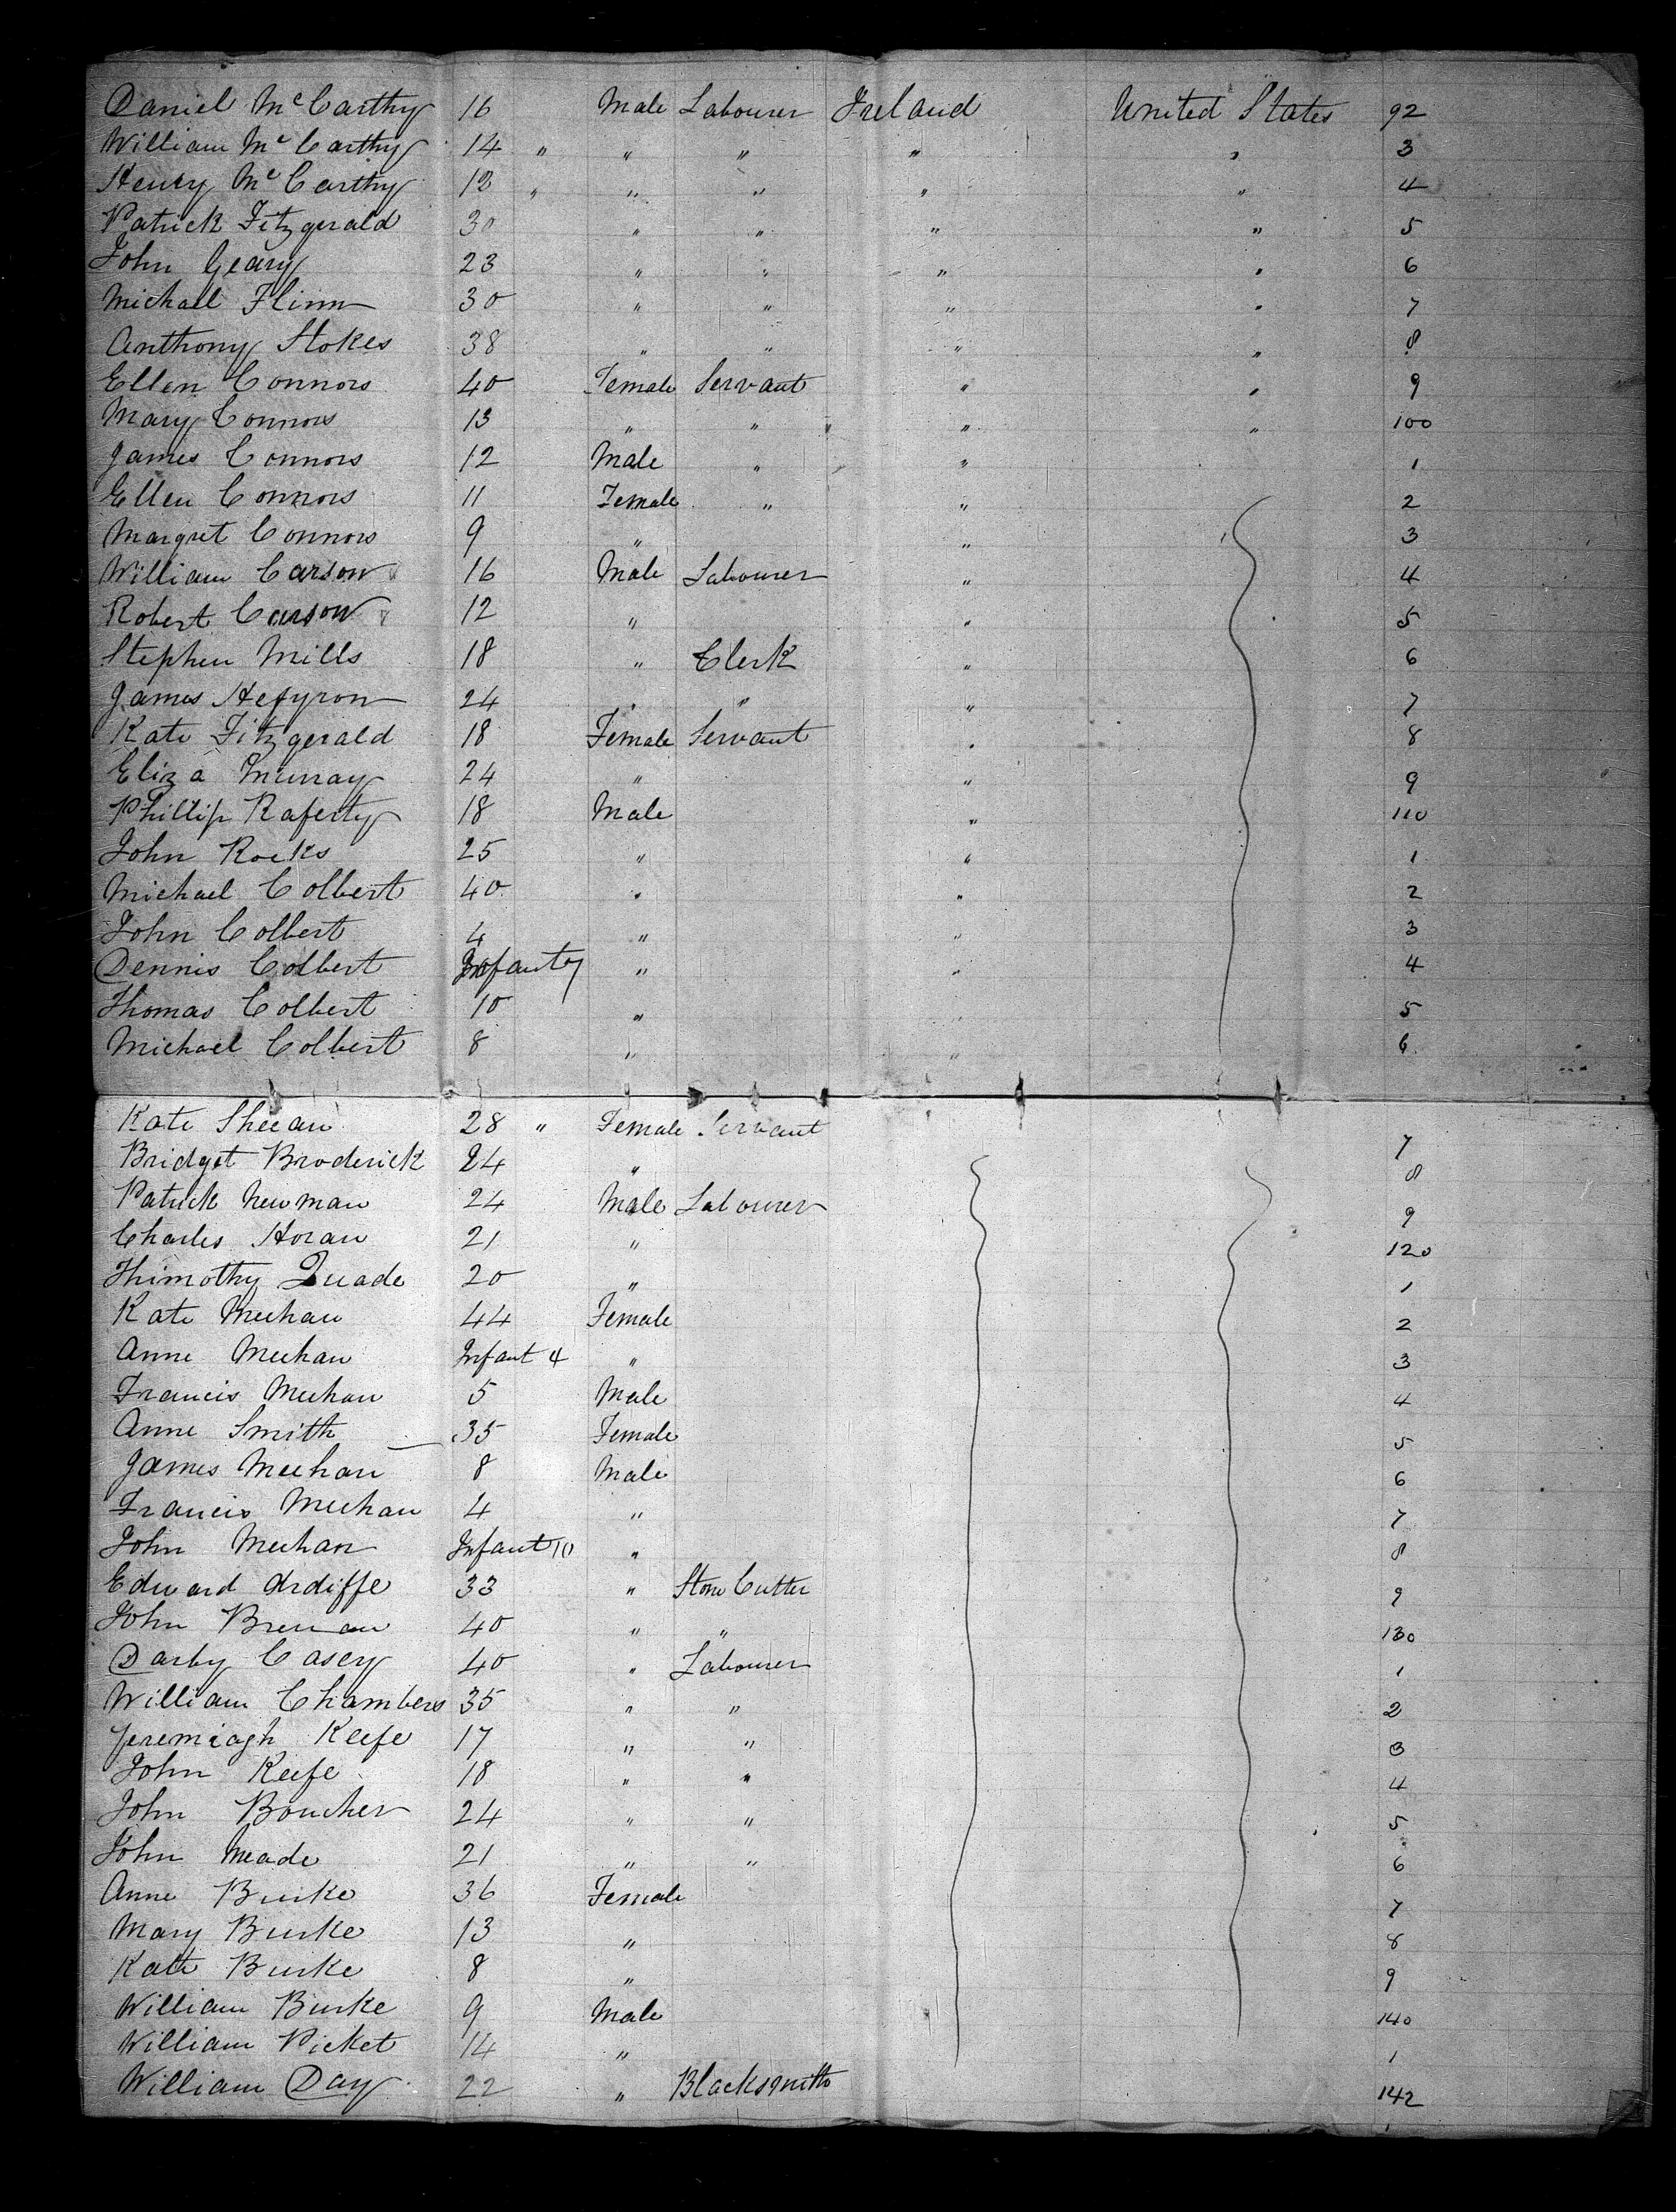 Daniel McCarthy 16 Male Labourer Ireland United States 92
William McCarthy 14 " " " " " 3
Henry McCarthy 12 " " " " " 4
Patrick Fitzgerald 30 " " " " 5
John Geary 23 " " " " 6
Michael Flinn 30 " " " " 7
Anthony Stokes 38 " " " " 8
Ellen Connors 40 Female Servant " " 9
Mary Connors 13 " " " " 100
James Connors 12 Male " " 1
Ellen Connors 11 Female " " 2
Margret Connors 9 " " 3
William Carson 16 Male Labourer " 4
Robert Carson 12 " " 5
Stephen Mills 18 " Clerk " 6
James Hefyron 24 " " " 7
Kate Fitzgerald 18 Female Servant " 8
Eliza Murray 24 " " 9
Phillip Raferty 18 Male " 110
John Rocks 25 " " 1
Michael Colbert 40 " " 2
John Colbert 4 " " 3
Dennis Colbert Infant 7 " " 4
Thomas Colbert 10 " " 5
Michael Colbert 8 " " 6
Kate Sheean 28 " Female Servant 7
Bridget Broderick 24 " 8
Patrick Newman 24 Male Labourer 9
Charles Horan 21 " 120
Thimothy Quade 20 " 1
Kate Meehan 44 Female 2
Anne Meehan Infant 4 " 3
Francis Meehan 5 Male 4
Anne Smith 35 Female 5
James Meehan 8 Male 6
Francis Meehan 4 " 7
John Meehan Infant 10 " 8
Edward Ardiffe 33 " Stone Cutter 9
John Brennan 40 " " 130
Darby Casey 40 " Labourer 1
William Chambers 35 " " 2
Jeremiagh Keefe 17 " " 3
John Keefe 18 " " 4
John Boucher 24 " " 5
John Meade 21 " " 6
Anne Burke 36 Female 7
Mary Burke 13 " 8
Kate Burke 8 " 9
William Burke 9 Male 140
William Picket 14 " 1
William Day 22 " Blacksmith 142